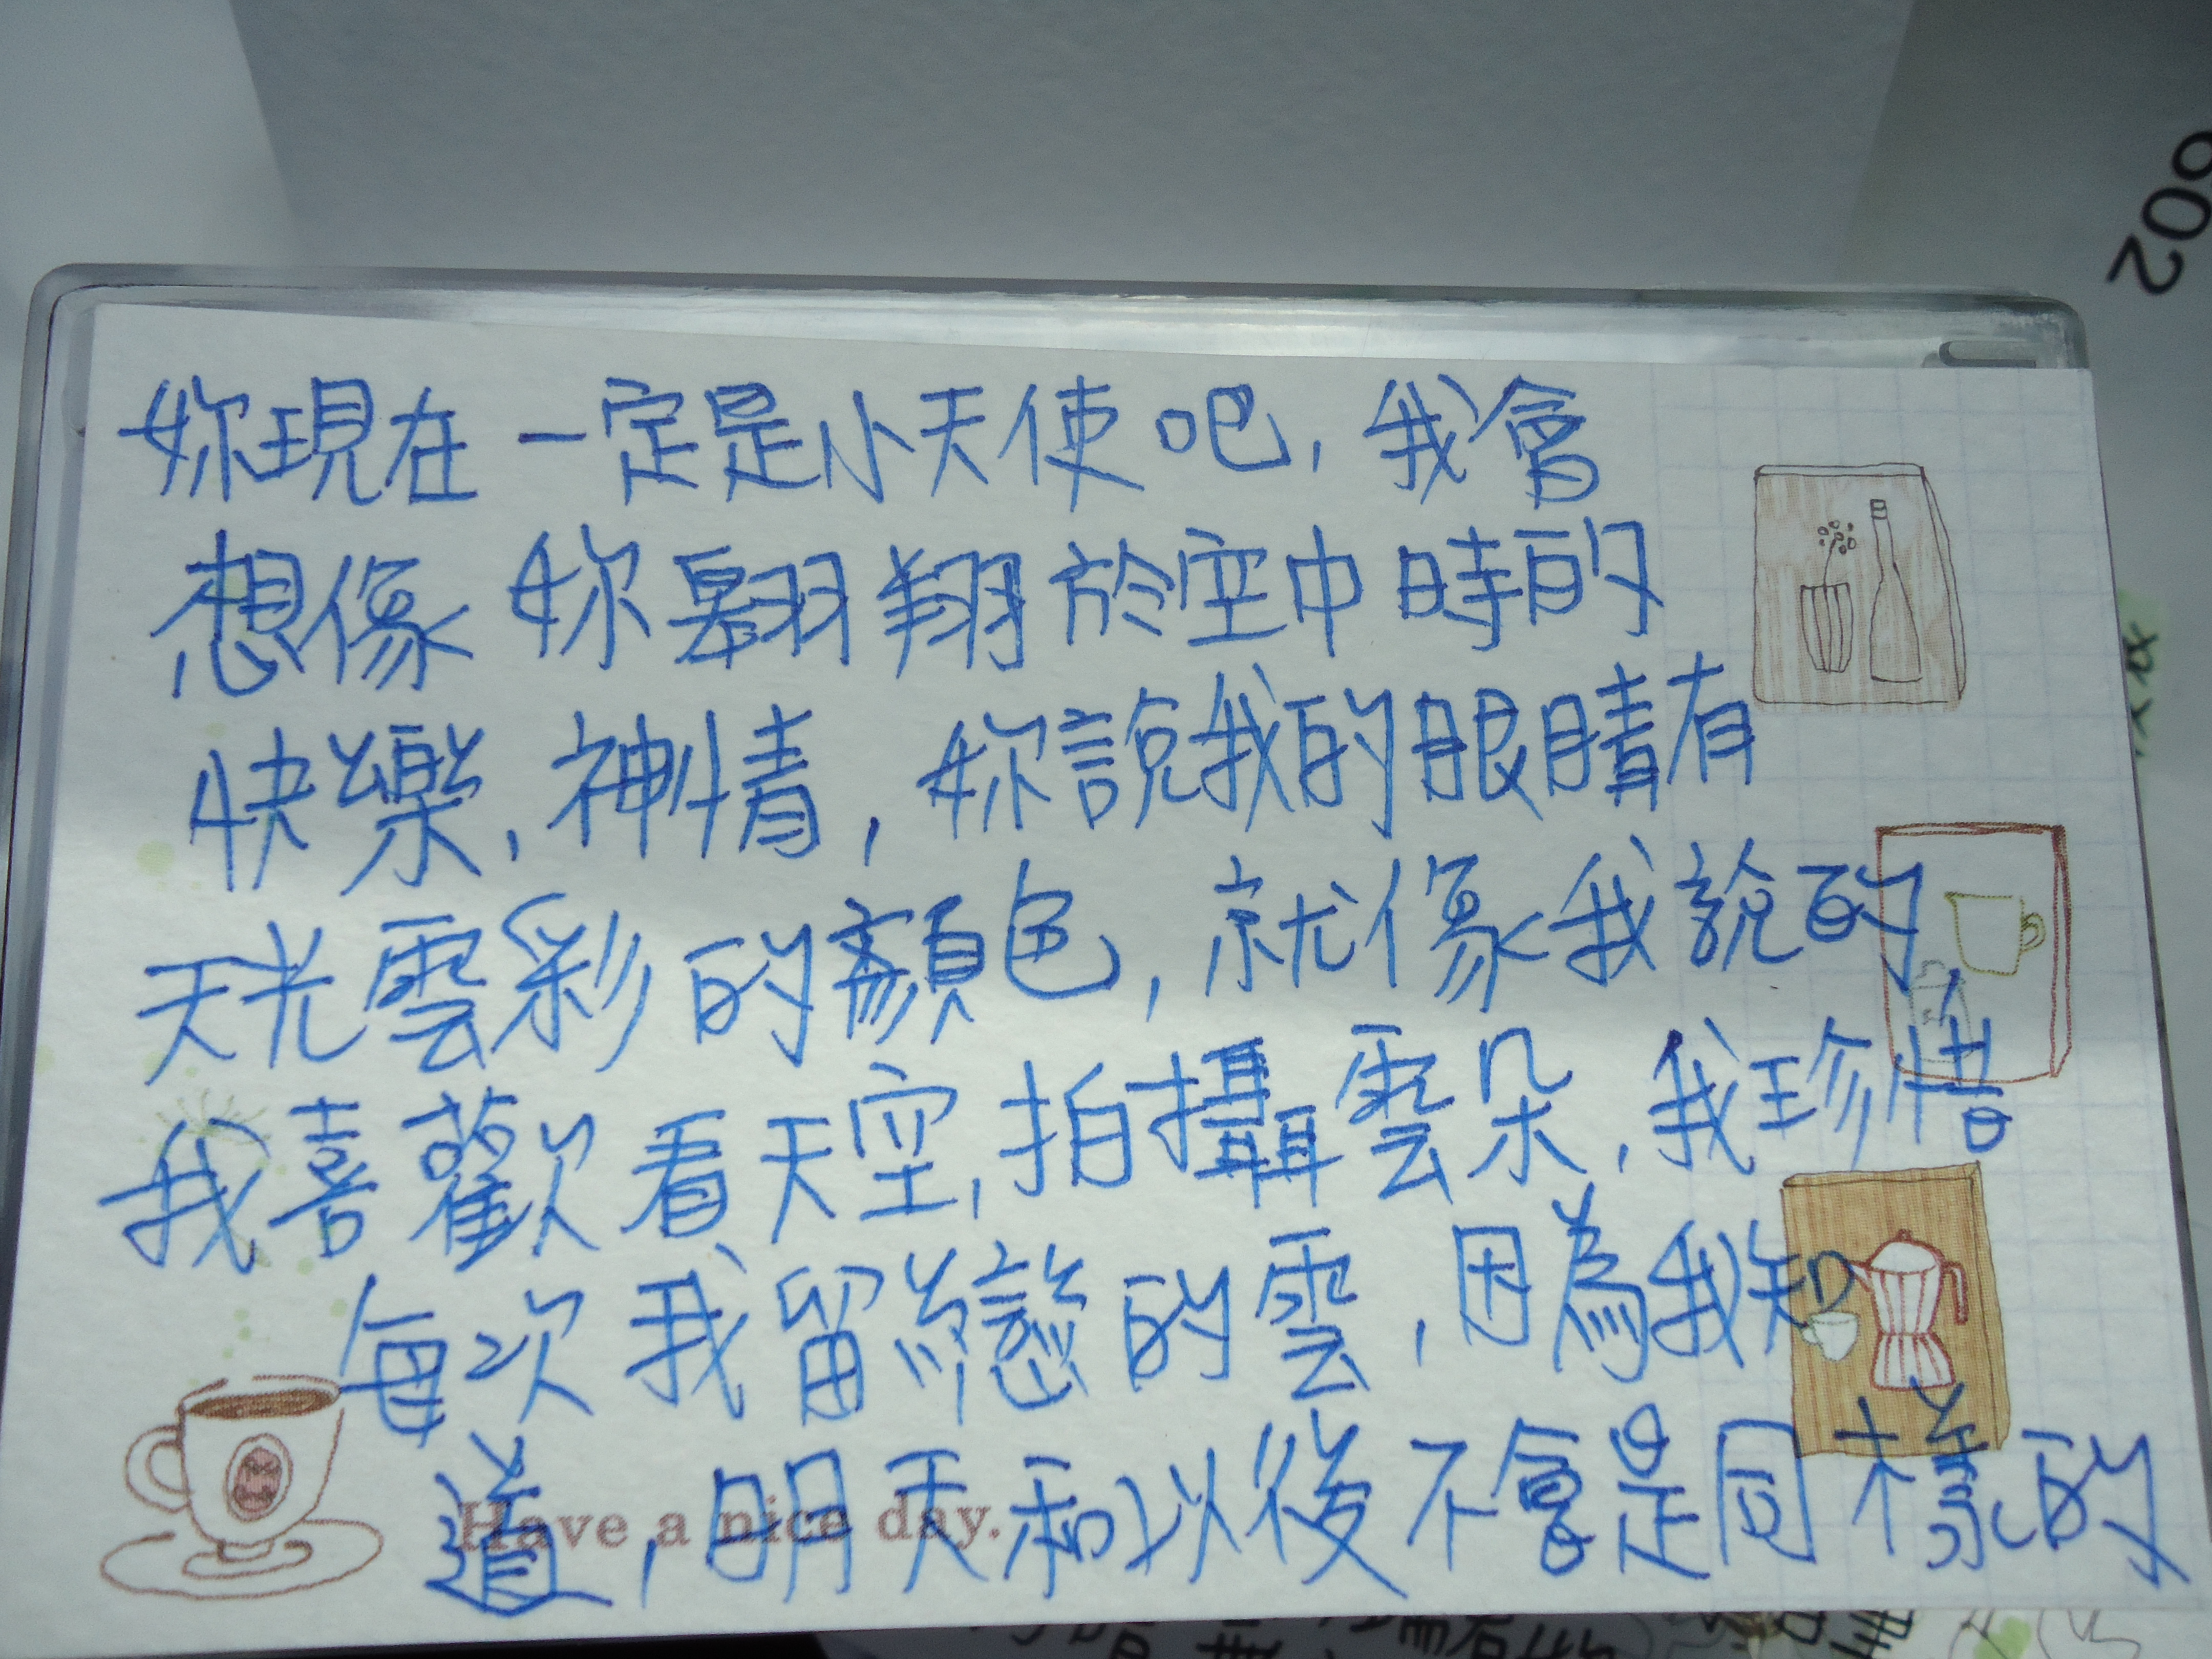 002
妳現在一定是小天使吧，我會
想像妳翱翔於空中時的
快樂，神情，妳說我的眼睛有
天光雲彩的顏色，就像我說的，
我喜歡看天空，拍攝雲朵，我珍惜
每次我留戀的雲，因為我知
道，明天和以後不會是同樣的
Have a nice day.